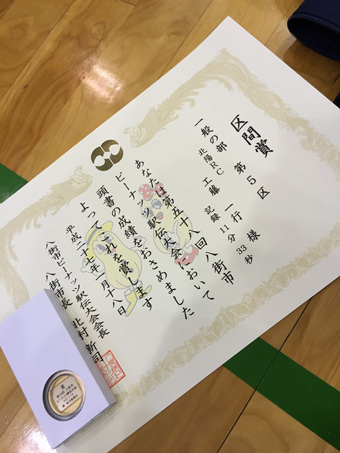 区間賞
一般の部 第5区
北陽RC 工藤 一行様
記録 11分33秒
あなたは第五十八回八街市
ピーナッツ駅伝大会において
頭書の成績をおさめました
よってこれを賞します
平成二十七年 月十八日
八街市ピーナッツ駅伝大会会長
八街市長 北村新司